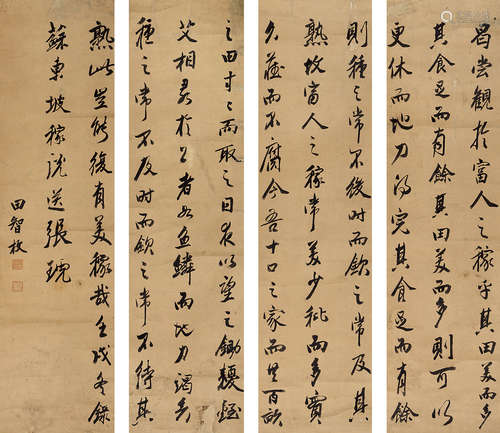 曷嘗觀於富人之稼乎其田美而多
其食足而有餘其田美而多則可以
更休而地力得完其食足而有餘
則種之常不後時而斂之常及其
熟故富人之稼常美少秕而多實
久藏而不腐今吾十口之家而共百畝
之田寸寸而取之日夜以望之鋤耰銍
艾相尋於上者如魚鱗而地力竭矣
種之常不及時而斂之常不待其
熟此豈能復有美稼哉壬戌冬錄
蘇東坡稼說送張琥
田智枚